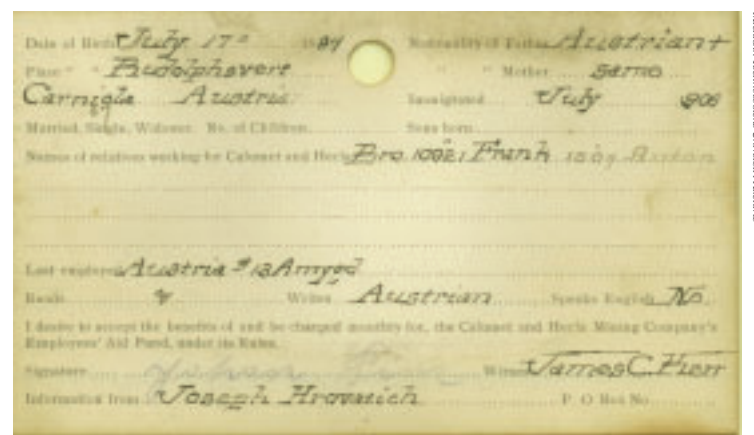 Date of Birth July 17" 1887 Nationality of Father Austrian +
Place " " Rudolphsvert " " Mother same
Carniola Austria Immigrated July 1906
Married, Single, Widower. No. of Children Sons born
Names of relatives working for Calumet and Hecla Bro. 10921 Frank Anton
Last employed Austria # 13 Amygd
Reads " Writes Austrian Speaks English No
I desire to accept the benefits of and be charged monthly for, the Calumet and Hecla Mining Company's
Employees' Aid Fund, under its Rules.
Signature Witness James C. Kerr
Information from Joseph P. O Box No.